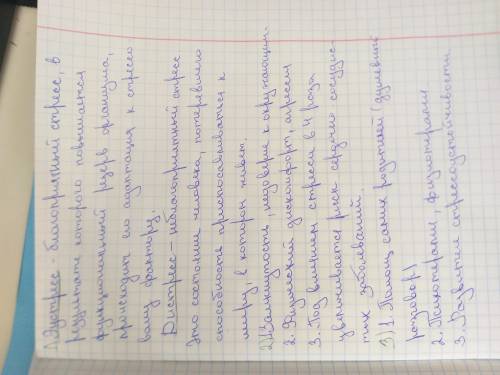 1. Эустресс - благоприятный стресс, в
результате которого повышается
функциональный резерв организма,
происходит его адаптация к стрессо
вому фактору.
Дистресс - неблагоприятный стресс
Это состояние человека, потерявшего
способность приспосабливаться к
миру, в котором живет.
2) 1. Замкнутость, недоверие к окружающим.
2. Физический дискомфорт, агрессия
3. Под влиянием стресса в 4 раза
увеличивается риск сердечно сосудис-
тых заболеваний.
3) 1. Помощь самих родителей (душевный
разговор)
2. Психотерапия, физиотерапия
3. Развитие стрессоустойчивости